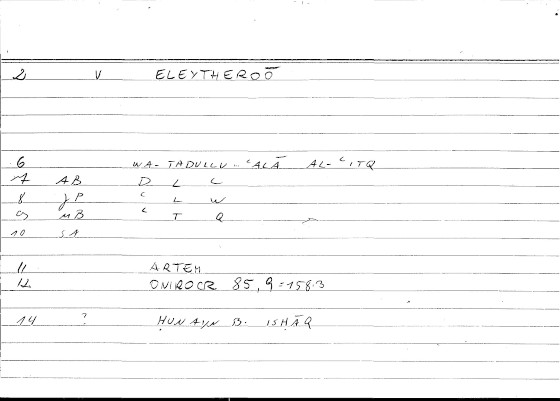 2 V ELEYTHEROŌ
6 WA-TADULLU-ʿALĀ AL-ʿITQ
7 AB D L L
8 JP ʿ L W
9 MB ʿ T Q
10 SA
11 ARTEM
12 ONIROCR 85,9=158.3
14 ? ḤUNAYN B. ISḤĀQ